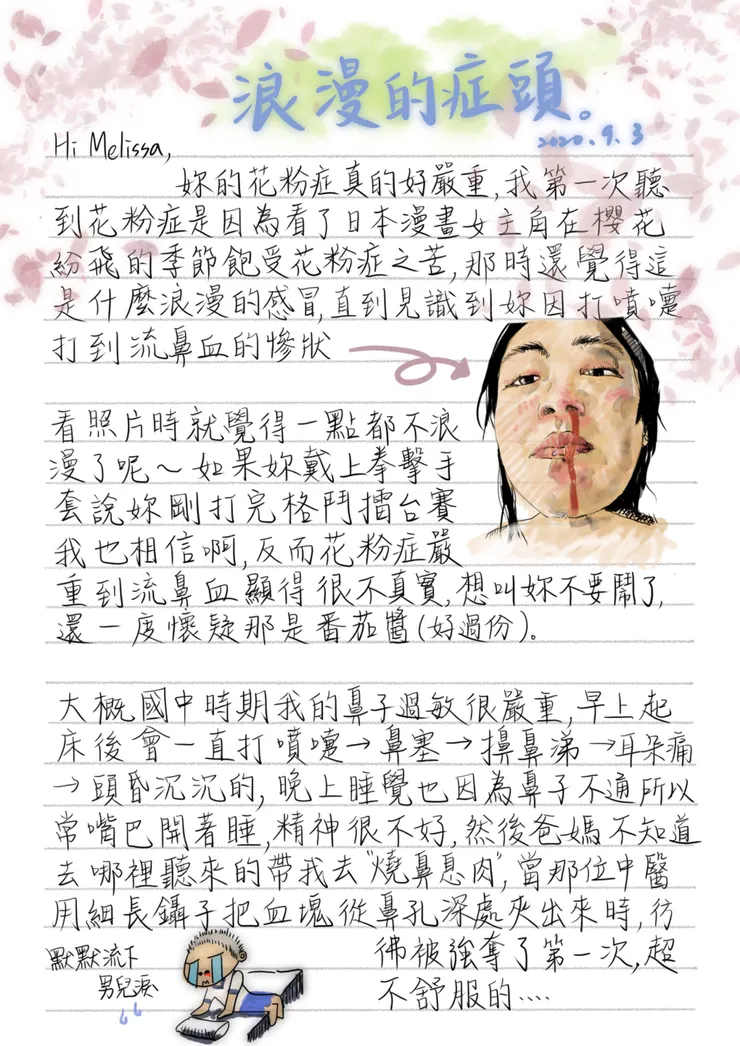 浪漫的症頭。
2020.9.3
Hi Melissa,
妳的花粉症真的好嚴重,我第一次聽
到花粉症是因為看了日本漫畫女主角在櫻花
紛飛的季節飽受花粉症之苦,那時還覺得這
是什麼浪漫的感冒,直到見識到妳因打噴嚏
打到流鼻血的慘狀
看照片時就覺得一點都不浪
漫了呢~如果妳戴上拳擊手
套說妳剛打完格鬥擂台賽
我也相信啊,反而花粉症嚴
重到流鼻血顯得很不真實,想叫妳不要鬧了,
還一度懷疑那是番茄醬(好過份)。
大概國中時期我的鼻子過敏很嚴重,早上起
床後會一直打噴嚏→鼻塞→擤鼻涕→耳朵痛
→頭昏沉沉的,晚上睡覺也因為鼻子不通所以
常嘴巴開著睡,精神很不好,然後爸媽不知道
去哪裡聽來的帶我去"燒鼻息肉",當那位中醫
用細長鑷子把血塊從鼻孔深處夾出來時,彷
彿被強奪了第一次,超
不舒服的....
默默流下
男兒淚